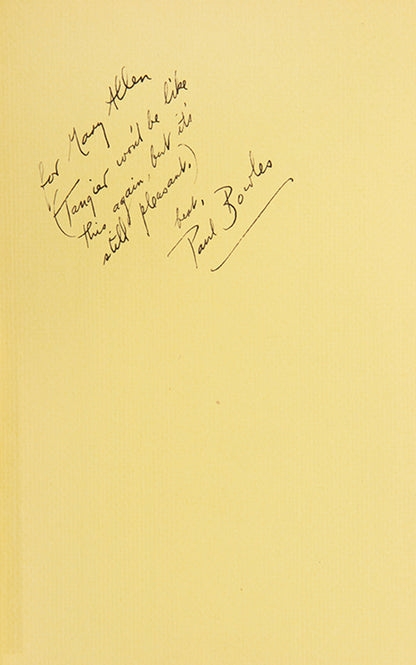 for Mary Allen
(Tangier won't be like
this again, but it's
still pleasant.)
best,
Paul Bowles